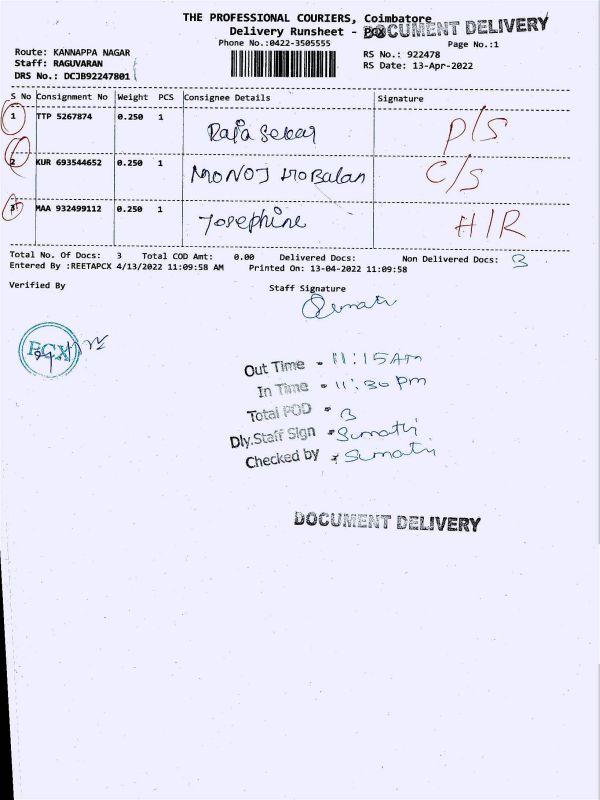 THE PROFESSIONAL COURIERS, Coimbatore
Delivery Runsheet - PCX
DOCUMENT DELIVERY
Phone No.:0422-3505555
Page No.:1
Route: KANNAPPA NAGAR
Staff: RAGUVARAN
DRS No.: DCJB92247801
RS No.: 922478
RS Date: 13-Apr-2022
S No Consignment No Weight PCS Consignee Details Signature
1 TTP 5267874 0.250 1 Raja Sekar P/S
2 KUR 693544652 0.250 1 C/S
3 MAA 932499112 0.250 1 Josephine H/R
Total No. Of Docs: 3 Total COD Amt: 0.00 Delivered Docs: Non Delivered Docs: 3
Entered By :REETAPCX 4/13/2022 11:09:58 AM Printed On: 13-04-2022 11:09:58
Verified By Staff Signature
Sumathi
PCX
Out Time - 11:15 Am
In Time - 11:30 pm
Total POD - 3
Dly.Staff Sign - Sumathi
Checked by - Sumathi
DOCUMENT DELIVERY